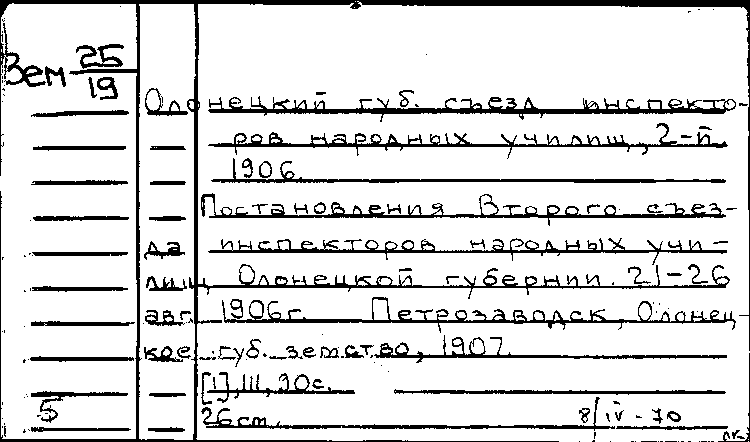 Зем 25/19
Олонецкий губ. съезд инспекто-
ров народных училищ, 2-й.
1906.
Постановления Второго съез-
да инспекторов народных учи-
лищ Олонецкой губернии. 21-26
авг. 1906г. Петрозаводск, Олонец-
кое губ. земство, 1907.
[1], III, 90с.
5 26 см. 8/IV-70
лк